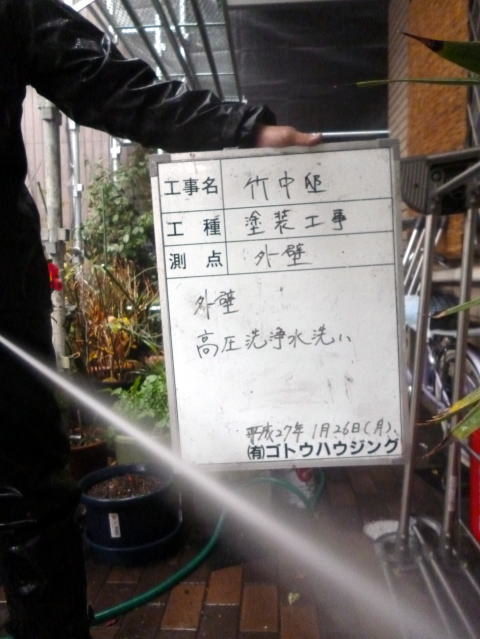 工事名 竹中邸
工種 塗装工事
測点 外壁
外壁
高圧洗浄水洗い
平成27年 1月26日(月)
(有)ゴトウハウジング